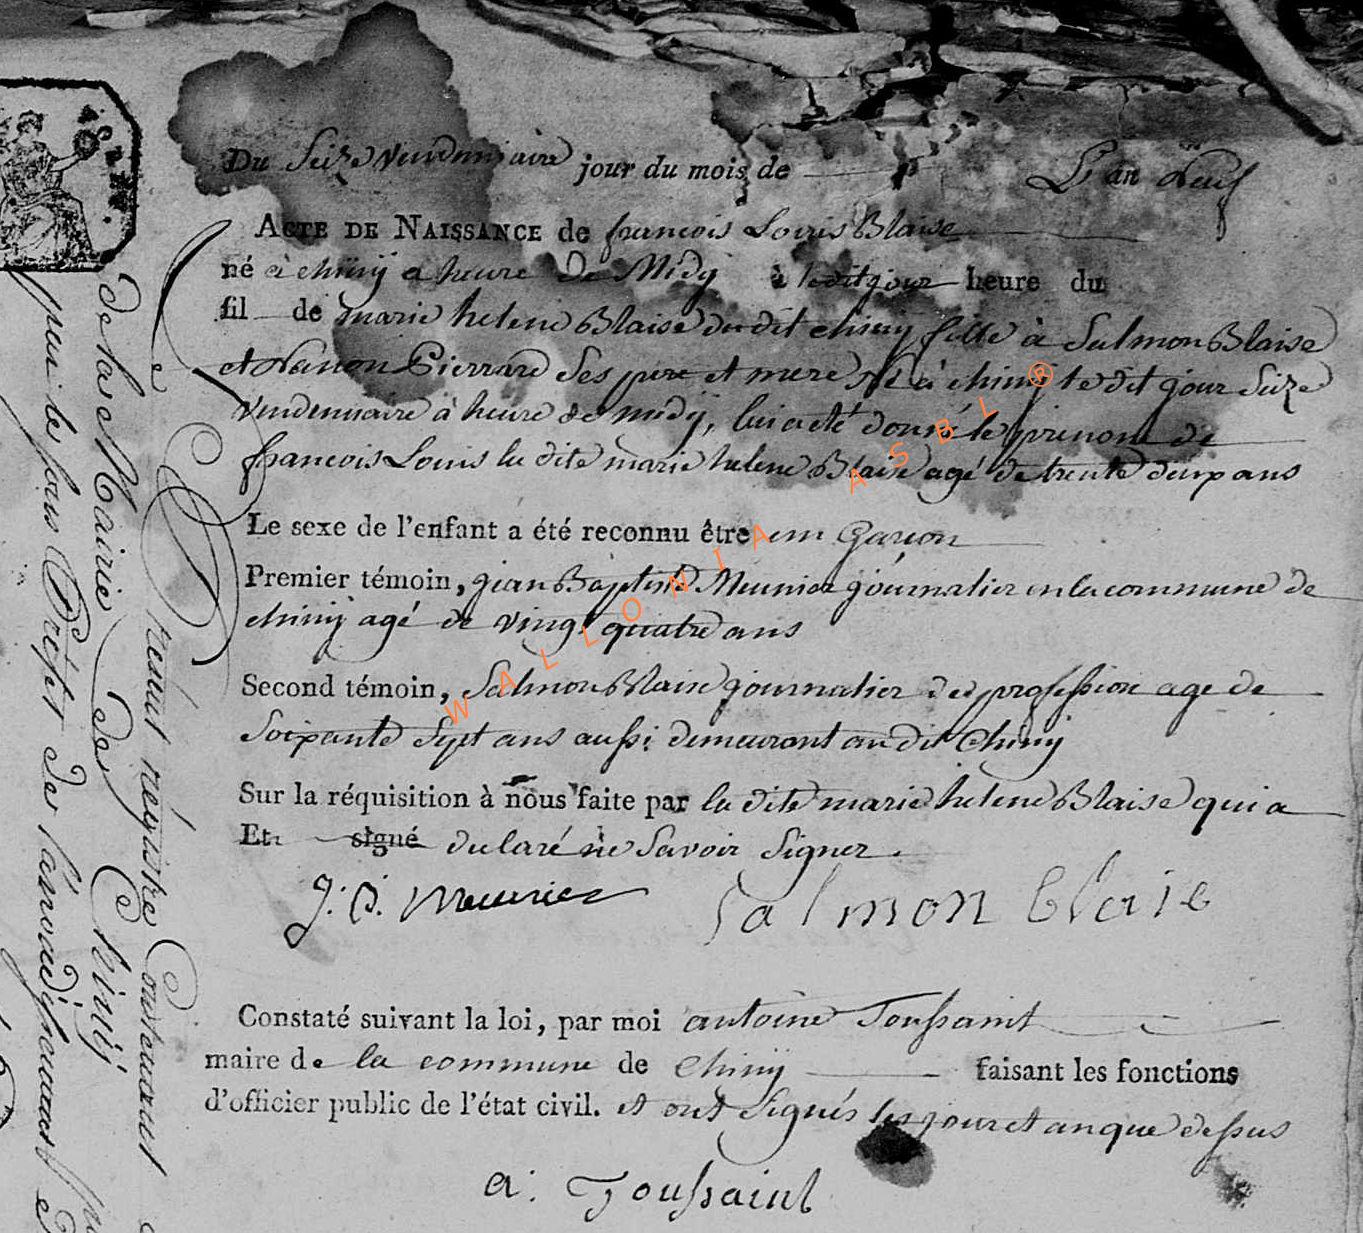 Du Seize Vendemiaire jour du mois de L'an Neuf
ACTE DE NAISSANCE de francois Louis Blaise
né à chiny a heure de Midy à le dit jour heure du
fil de marie helene Blaise du dit chiny fille à Salmon Blaise
et Nanon Pierrard Ses pere et mere Né à chiny le dit jour Seize
Vendemiaire à heure de midy, lui a été donné le prenom de
francois Louis la dite marie helene Blaise agé de trente deux ans
Le sexe de l'enfant a été reconnu être un Garçon
Premier témoin, jean Baptiste Meunier journalier en la commune de
chiny agé de vingt quatre ans
Second témoin, Salmon Blaise journalier de profession age de
Soixante Sept ans aussi demeurant au dit Chiny
Sur la réquisition à nous faite par la dite marie helene Blaise qui a
Et signé declaré ne Savoir Signer.
J. B. Meunier Salmon blaise
Constaté suivant la loi, par moi antoine Toussaint
maire de la commune de Chiny faisant les fonctions
d'officier public de l'état civil. et ont Signés les jour et an que dessus
a. Toussaint
present régistre Contenant
de la Mairie de Chiny
par le Sous Prefet de l'arrondissement
WALLONIA ASBL ®